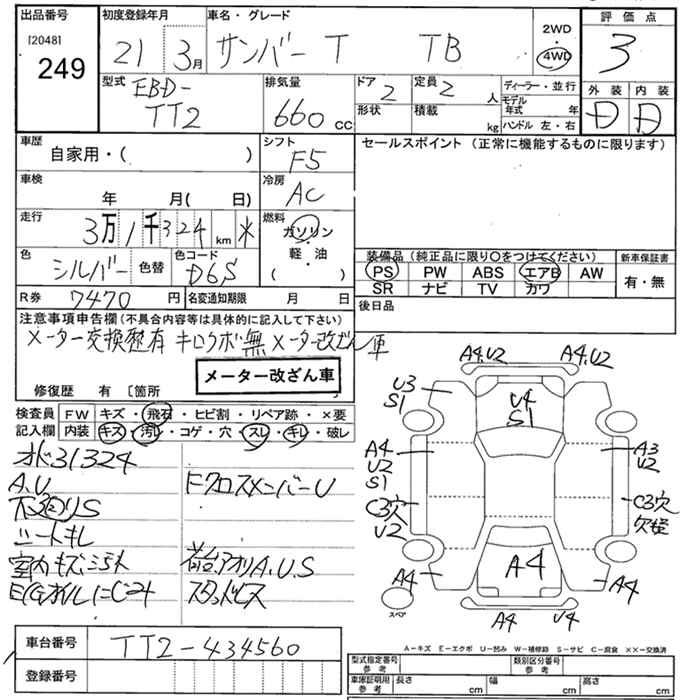 出品番号
[2048]
249
初度登録年月
21 3月
車名・グレード
サンバー T TB
2WD
4WD
評価点
3
型式
EBD-
TT2
排気量
660 cc
ドア
2
形状
定員 2 人
積載 kg
ディーラー・並行
モデル年式 年
ハンドル 左・右
外装 内装
D D
車歴
自家用・( )
シフト
F5
セールスポイント (正常に機能するものに限ります)
車検
年 月( 日)
冷房
AC
走行
3万1千324 km *
燃料
ガソリン
・
軽・油
・
( )
色
シルバー
色替
色コード
D6S
装備品 (純正品に限り○をつけてください)
PS PW ABS エアB AW
SR ナビ TV カワ
新車保証書
有・無
R券 7470 円
名変通知期限 月 日
後日品
注意事項申告欄 (不具合内容等は具体的に記入して下さい)
メーター交換歴有 キロクボ無 メーター改ざん車
メーター改ざん車
修復歴 有 〔箇所
検査員
記入欄
FW キズ・飛石・ヒビ割・リペア跡・×要
内装 キズ・汚レ・コゲ・穴・スレ・キレ・破レ
オド31324
A.U
下廻りS
シートキレ
室内キズミゾ大
E/Gオイルにじみ
FクロスメンバーU
荷台アオリA.U.S
スタッドレス
A4.U2 A4.U2
U3
S1
U4
S1
A4
U2
S1
A3
U2
C3穴
U2
C3穴
A4
A4
A4
A4 U4
スペア
車台番号 TT2-434560
登録番号
A-キズ E-エクボ U-凹み W-補修跡 S-サビ C-腐食 ××-交換済
型式指定番号
参考
類別区分番号
参考
車庫証明用
参考
長さ cm
幅 cm
高さ cm